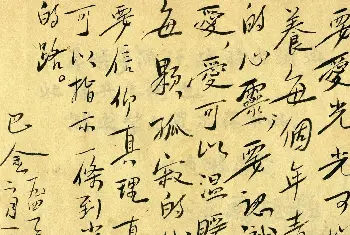 要愛光光可
養每個年青
的心靈，要認
愛，愛可以溫暖
每顆孤寂的
要信仰真理真
可以指示一條到
的路。
巴金 一九四